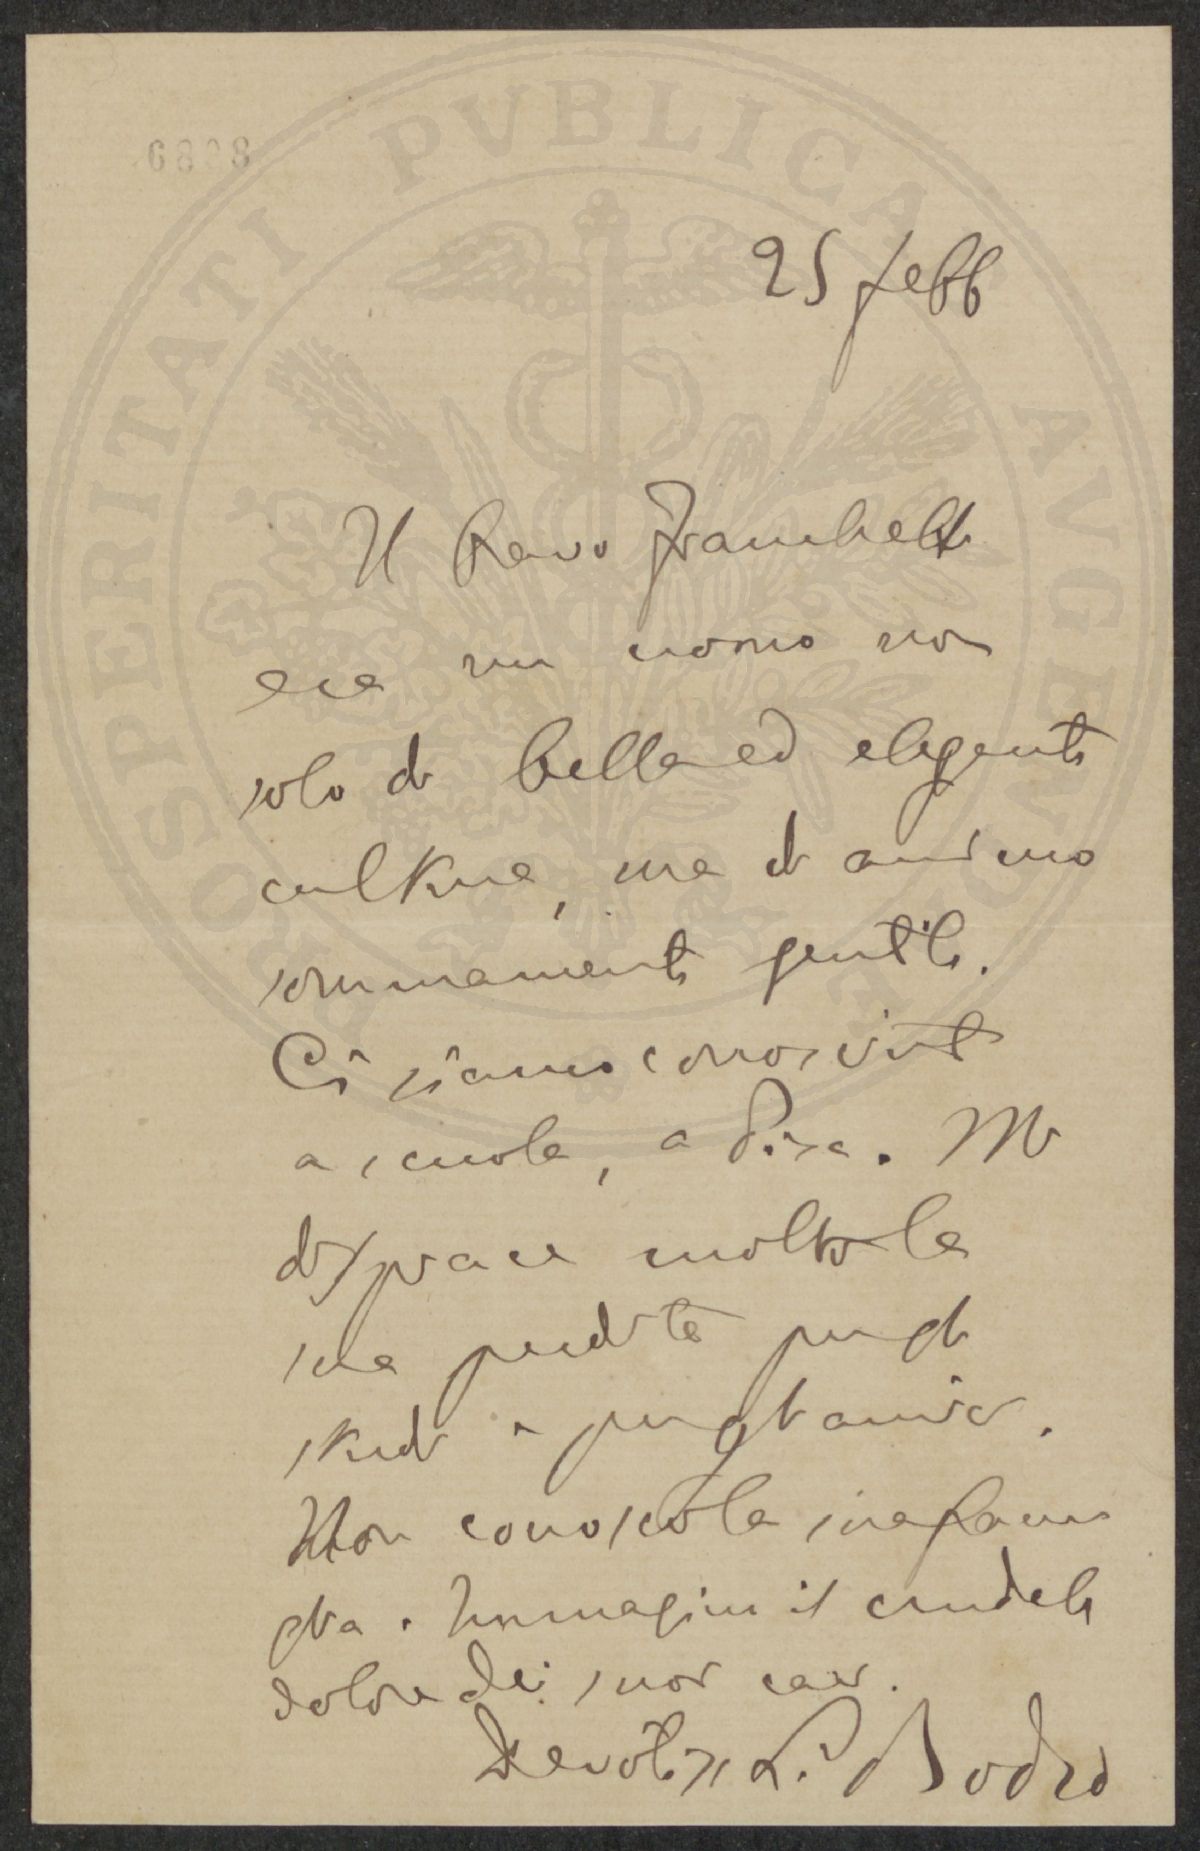 PROSPERITATI PVBLICAE AVGENDAE
6828
25 febb
Il bravo Zambelli
era un uomo non
solo di bella ed elegante
cultura, ma di animo
sommamente gentile.
Ci siamo conosciuti
a scuola, a Pisa. Mi
dispiace molto la
sua perdita per gli
studi e per gli amici.
Non conosco la sua fami
glia. Immagini il crudele
dolore dei suoi cari.
Devotiss L. Bodio